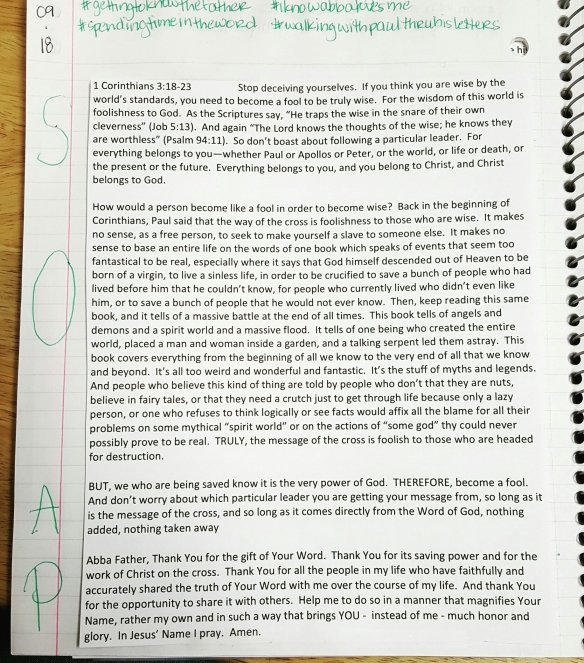 #gettingtoknowthefather #iknowabbalovesme
09 #spendingtimeintheword #walkingwithpaulthruhisletters
.
18
S
O
A
P
1 Corinthians 3:18-23 Stop deceiving yourselves. If you think you are wise by the
world's standards, you need to become a fool to be truly wise. For the wisdom of this world is
foolishness to God. As the Scriptures say, "He traps the wise in the snare of their own
cleverness" (Job 5:13). And again "The Lord knows the thoughts of the wise; he knows they
are worthless" (Psalm 94:11). So don't boast about following a particular leader. For
everything belongs to you—whether Paul or Apollos or Peter, or the world, or life or death, or
the present or the future. Everything belongs to you, and you belong to Christ, and Christ
belongs to God.
How would a person become like a fool in order to become wise? Back in the beginning of
Corinthians, Paul said that the way of the cross is foolishness to those who are wise. It makes
no sense, as a free person, to seek to make yourself a slave to someone else. It makes no
sense to base an entire life on the words of one book which speaks of events that seem too
fantastical to be real, especially where it says that God himself descended out of Heaven to be
born of a virgin, to live a sinless life, in order to be crucified to save a bunch of people who had
lived before him that he couldn't know, for people who currently lived who didn't even like
him, or to save a bunch of people that he would not ever know. Then, keep reading this same
book, and it tells of a massive battle at the end of all times. This book tells of angels and
demons and a spirit world and a massive flood. It tells of one being who created the entire
world, placed a man and woman inside a garden, and a talking serpent led them astray. This
book covers everything from the beginning of all we know to the very end of all that we know
and beyond. It's all too weird and wonderful and fantastic. It's the stuff of myths and legends.
And people who believe this kind of thing are told by people who don't that they are nuts,
believe in fairy tales, or that they need a crutch just to get through life because only a lazy
person, or one who refuses to think logically or see facts would affix all the blame for all their
problems on some mythical "spirit world" or on the actions of "some god" thy could never
possibly prove to be real. TRULY, the message of the cross is foolish to those who are headed
for destruction.
BUT, we who are being saved know it is the very power of God. THEREFORE, become a fool.
And don't worry about which particular leader you are getting your message from, so long as it
is the message of the cross, and so long as it comes directly from the Word of God, nothing
added, nothing taken away
Abba Father, Thank You for the gift of Your Word. Thank You for its saving power and for the
work of Christ on the cross. Thank You for all the people in my life who have faithfully and
accurately shared the truth of Your Word with me over the course of my life. And thank You
for the opportunity to share it with others. Help me to do so in a manner that magnifies Your
Name, rather my own and in such a way that brings YOU - instead of me - much honor and
glory. In Jesus' Name I pray. Amen.